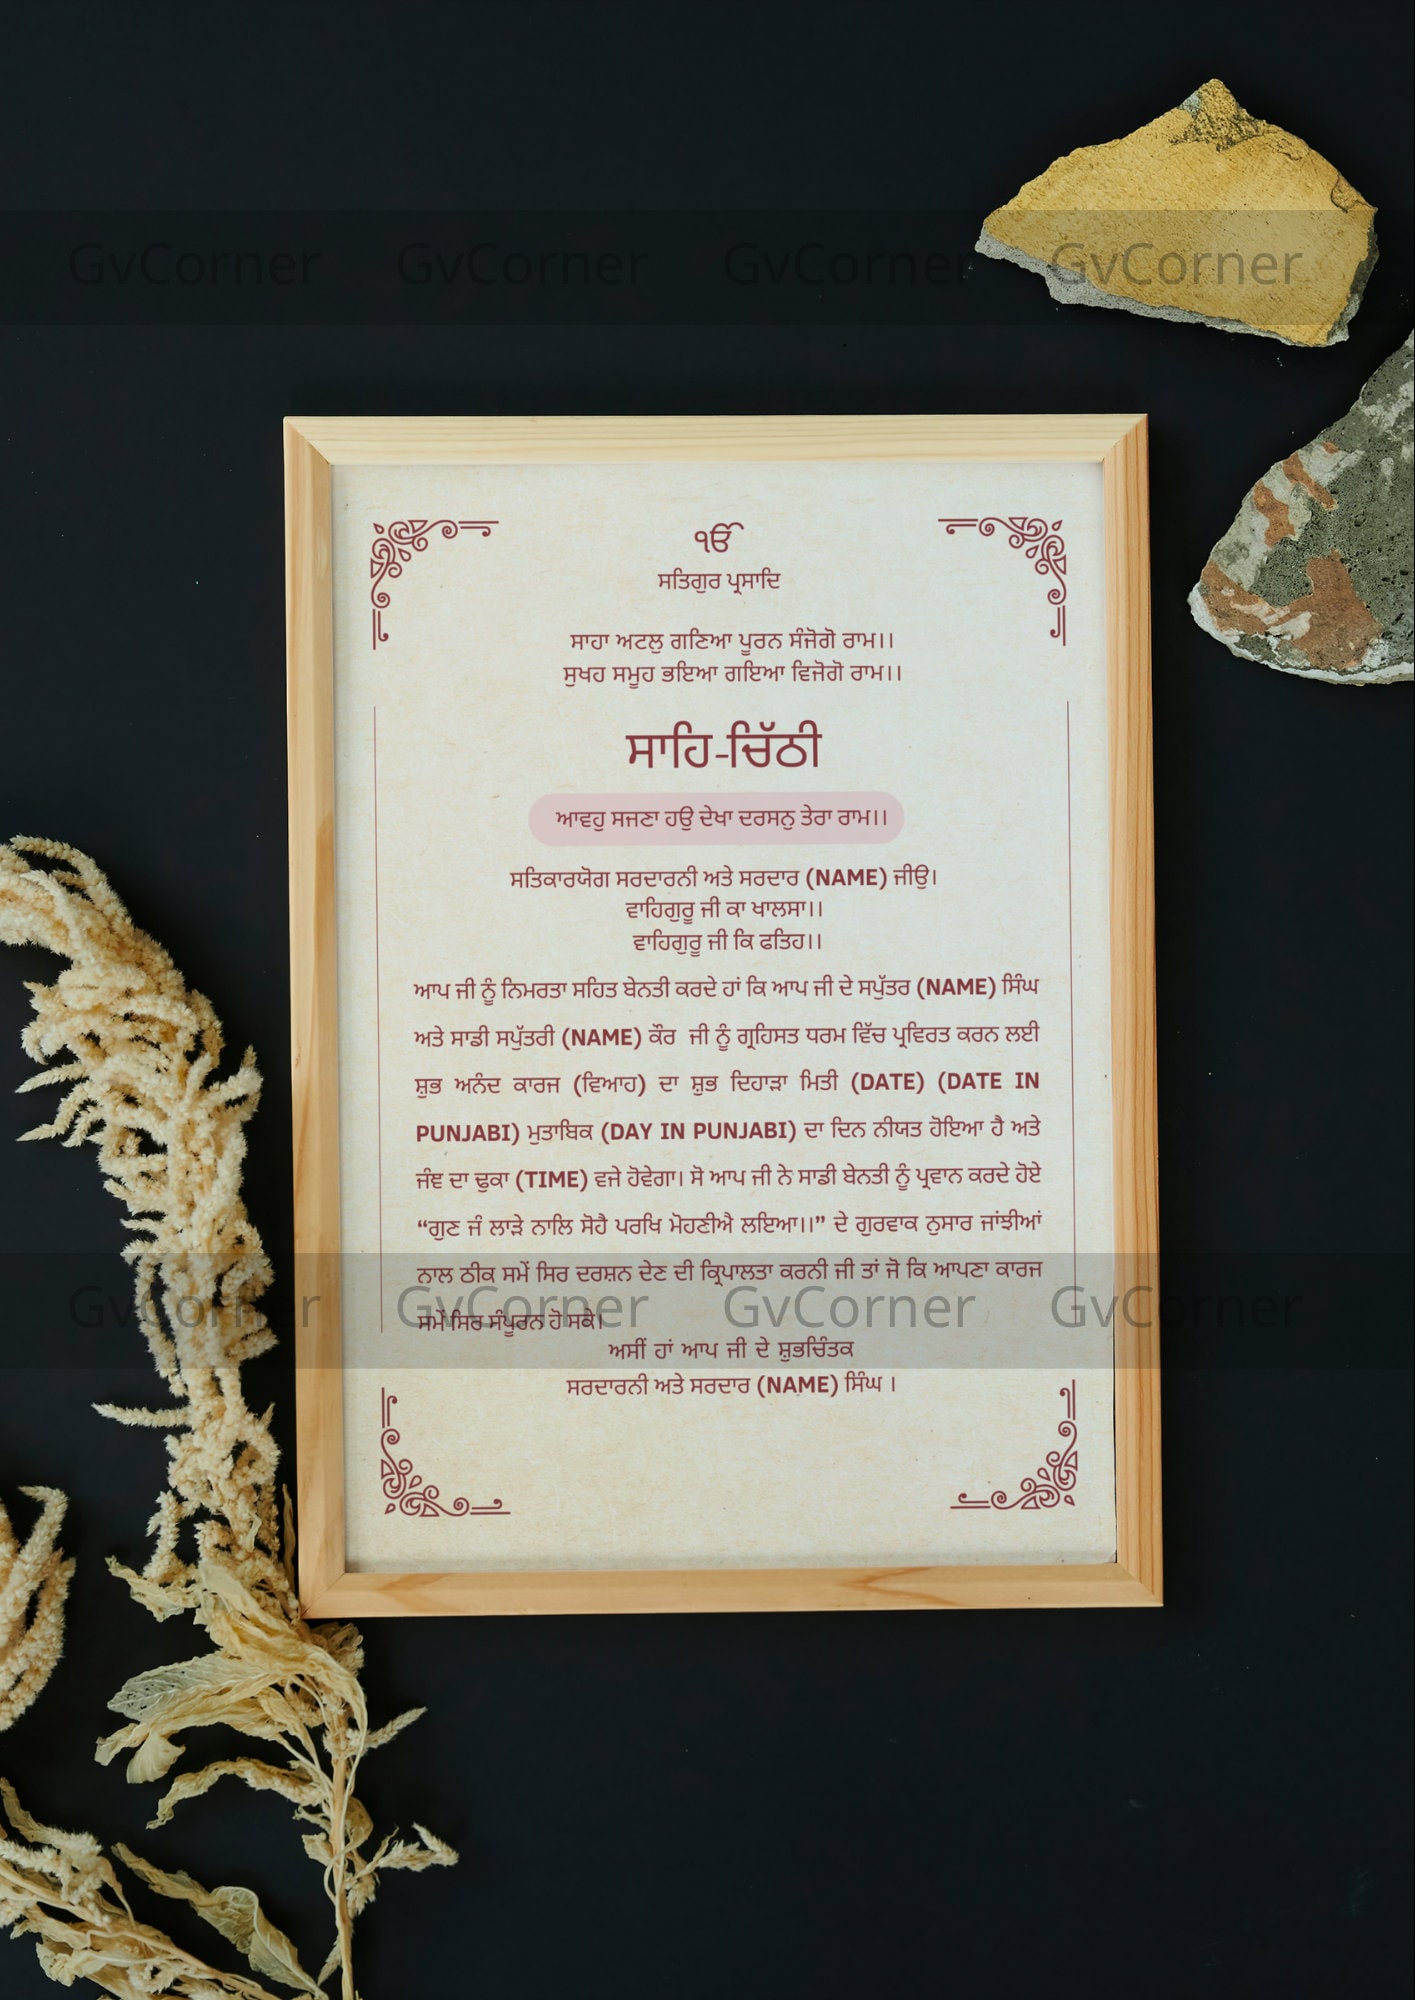 GvCorner GvCorner GvCorner GvCorner
ੴ
ਸਤਿਗੁਰ ਪ੍ਰਸਾਦਿ
ਸਾਹਾ ਅਟਲੁ ਗਣਿਆ ਪੂਰਨ ਸੰਜੋਗੋ ਰਾਮ।।
ਸੁਖਹ ਸਮੂਹ ਭਇਆ ਗਇਆ ਵਿਜੋਗੋ ਰਾਮ।।
ਸਾਹਿ-ਚਿੱਠੀ
ਆਵਹੁ ਸਜਣਾ ਹਉ ਦੇਖਾ ਦਰਸਨੁ ਤੇਰਾ ਰਾਮ।।
ਸਤਿਕਾਰਯੋਗ ਸਰਦਾਰਨੀ ਅਤੇ ਸਰਦਾਰ (NAME) ਜੀਉ।
ਵਾਹਿਗੁਰੂ ਜੀ ਕਾ ਖਾਲਸਾ।।
ਵਾਹਿਗੁਰੂ ਜੀ ਕਿ ਫਤਿਹ।।
ਆਪ ਜੀ ਨੂੰ ਨਿਮਰਤਾ ਸਹਿਤ ਬੇਨਤੀ ਕਰਦੇ ਹਾਂ ਕਿ ਆਪ ਜੀ ਦੇ ਸਪੁੱਤਰ (NAME) ਸਿੰਘ
ਅਤੇ ਸਾਡੀ ਸਪੁੱਤਰੀ (NAME) ਕੌਰ ਜੀ ਨੂੰ ਗ੍ਰਹਿਸਤ ਧਰਮ ਵਿੱਚ ਪ੍ਰਵਿਰਤ ਕਰਨ ਲਈ
ਸ਼ੁਭ ਅਨੰਦ ਕਾਰਜ (ਵਿਆਹ) ਦਾ ਸ਼ੁਭ ਦਿਹਾੜਾ ਮਿਤੀ (DATE) (DATE IN
PUNJABI) ਮੁਤਾਬਿਕ (DAY IN PUNJABI) ਦਾ ਦਿਨ ਨੀਯਤ ਹੋਇਆ ਹੈ ਅਤੇ
ਜੰਞ ਦਾ ਢੁਕਾ (TIME) ਵਜੇ ਹੋਵੇਗਾ। ਸੋ ਆਪ ਜੀ ਨੇ ਸਾਡੀ ਬੇਨਤੀ ਨੂੰ ਪ੍ਰਵਾਨ ਕਰਦੇ ਹੋਏ
“ਗੁਣ ਜੰ ਲਾੜੇ ਨਾਲਿ ਸੋਹੈ ਪਰਖਿ ਮੋਹਣੀਐ ਲਇਆ।।” ਦੇ ਗੁਰਵਾਕ ਨੁਸਾਰ ਜਾਂਞੀਆਂ
ਨਾਲ ਠੀਕ ਸਮੇਂ ਸਿਰ ਦਰਸ਼ਨ ਦੇਣ ਦੀ ਕ੍ਰਿਪਾਲਤਾ ਕਰਨੀ ਜੀ ਤਾਂ ਜੋ ਕਿ ਆਪਣਾ ਕਾਰਜ
ਸਮੇਂ ਸਿਰ ਸੰਪੂਰਨ ਹੋ ਸਕੇ।
GvCorner GvCorner GvCorner GvCorner
ਅਸੀਂ ਹਾਂ ਆਪ ਜੀ ਦੇ ਸ਼ੁਭਚਿੰਤਕ
ਸਰਦਾਰਨੀ ਅਤੇ ਸਰਦਾਰ (NAME) ਸਿੰਘ ।